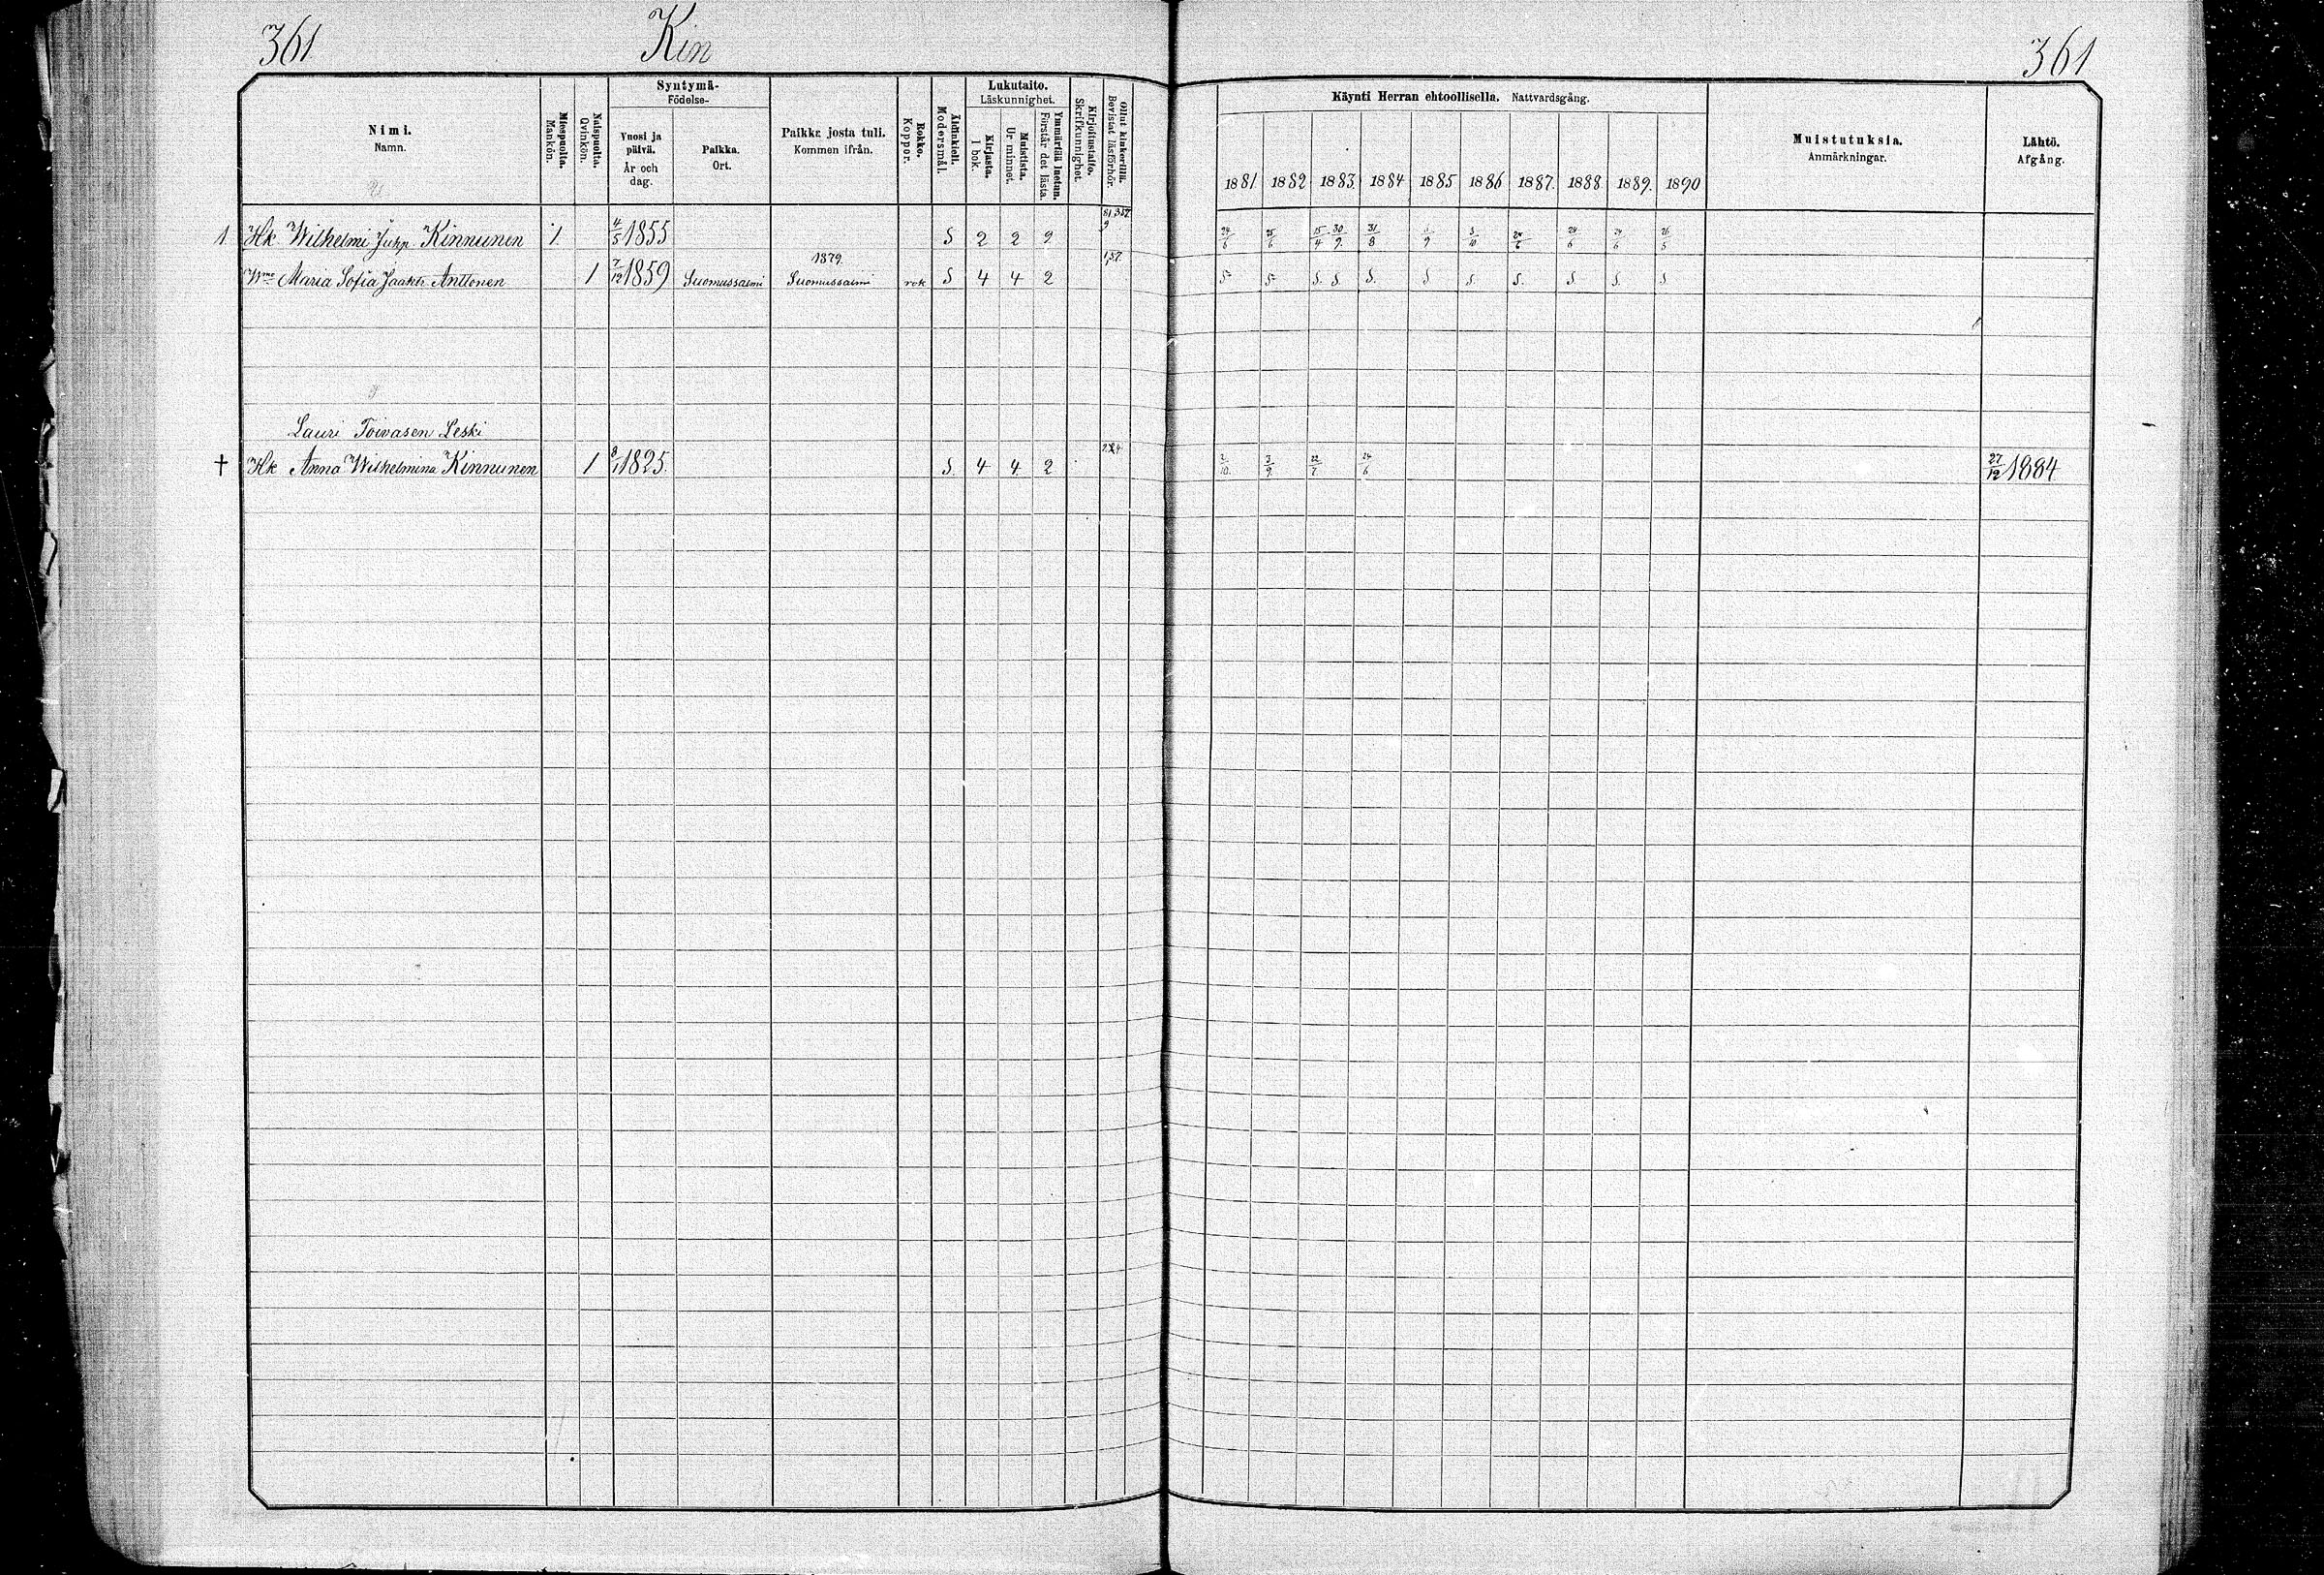 361.
Kin
361
Nimi.
Namn.
Miespuolta.
Mankön.
Naispuolta.
Qvinkön.
Syntymä-
Födelse-
Vuosi ja päivä.
År och dag.
Paikka.
Ort.
Paikka josta tuli.
Kommen ifrån.
Rokko.
Koppor.
Äidinkieli.
Modersmål.
Lukutaito.
Läskunnighet.
Kirjasta.
I bok.
Muistista.
Ur minnet.
Ymmärtää luetun.
Förstår det lästa.
Kirjoitustaito.
Skrifkunnighet.
Ollut kinkerillä.
Bevistat läsförhör.
Käynti Herran ehtoollisella. Nattvardsgång.
1881. 1882 1883. 1884 1885 1886 1887. 1888. 1889. 1890
Muistutuksia.
Anmärkningar.
Lähtö.
Afgång.
1 Hk Wilhelmi Juhp. Kinnunen 1. 4/5 1855 S 2 2 2 24/6 25/6 15/4 30/9. 31/8 /9 3/10 24/6 24/6 24/6 26/5
Wmo Maria Sofia Jaakktr Anttonen 1 7/12 1859 Suomussalmi 1879. Suomussalmi rok S 4 4 2 S S S. S. S. S S. S. S S. S
Lauri Toivasen Leski
† Hk Anna Wilhelmina Kinnunen 1 8/1 1825. S. 4 4. 2 2/10. 3/9. 22/7. 24/6 27/12 1884